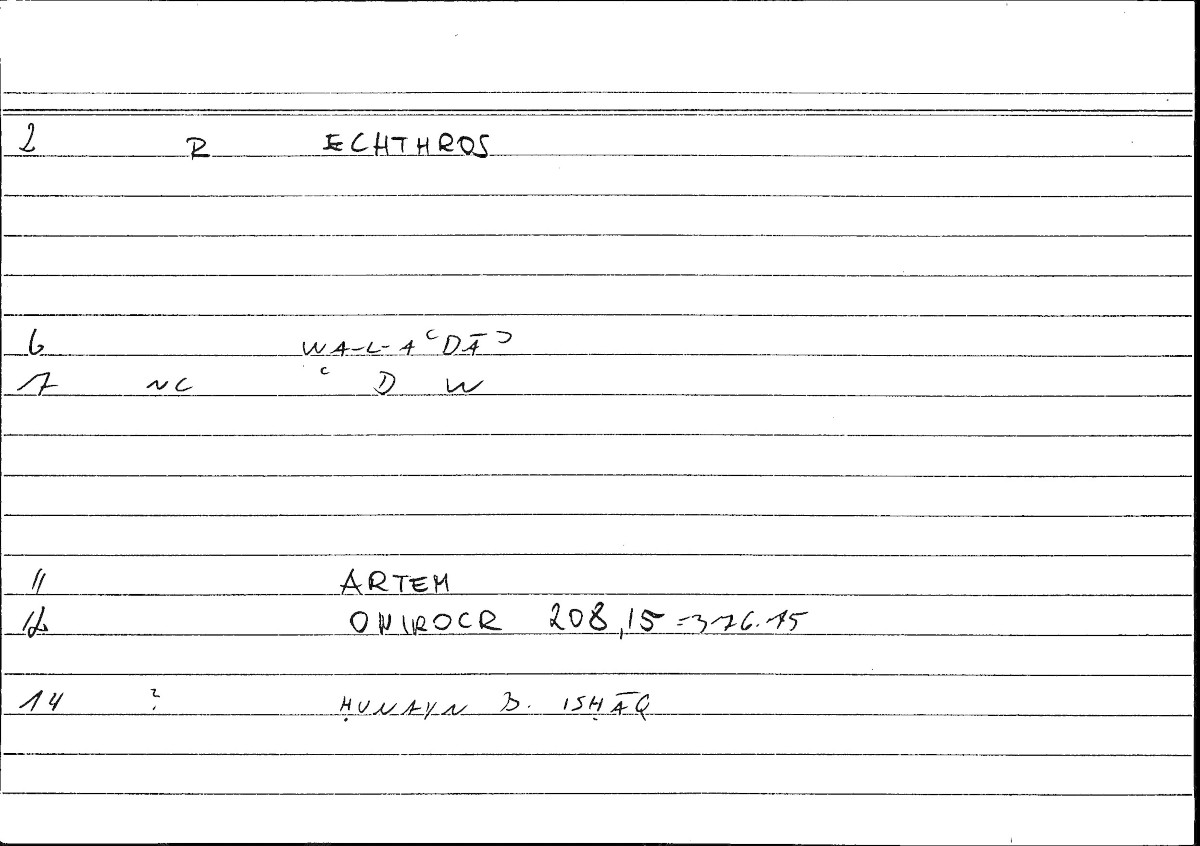 2 R ECHTHROS
6 WA-L-AʿDĀʾ
7 NC ʿ D W
11 ARTEM
12 ONIROCR 208,15 = 376.15
14 ? ḤUNAYN B. ISḤĀQ